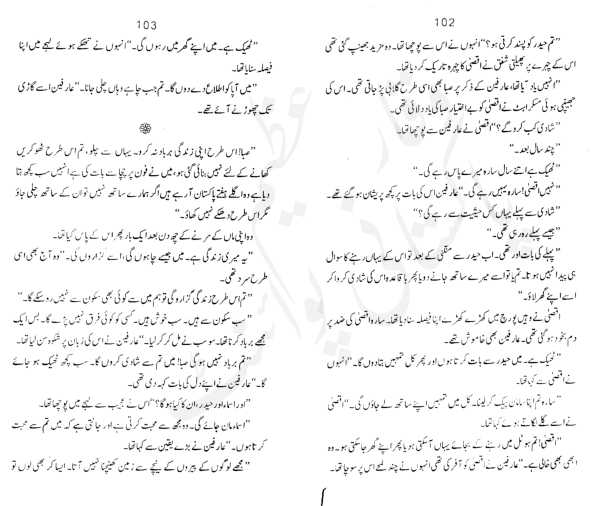 102
"تم حیدر کو پسند کرتی ہو؟" انہوں نے اس سے پوچھا تھا۔ وہ مزید جھینپ گئی تھی
اس کے چہرے پر پھیلتی شفق نے اقصٰی کا چہرہ تاریک کر دیا تھا۔
"انہیں یاد آیا تھا، عارفین کے ذکر پر صبا بھی اسی طرح گلابی پڑ جاتی تھی۔ اس کی
جھینپی ہوئی مسکراہٹ نے اقصٰی کو بے اختیار صبا کی یاد دلائی تھی۔
"شادی کب کرو گے؟" اقصٰی نے عارفین سے پوچھا تھا۔
"چند سال بعد۔"
"ٹھیک ہے اتنے سال سارہ میرے پاس رہے گی۔"
"نہیں اقصٰی! سارہ یہیں رہے گی۔" عارفین اس کی بات پر کچھ پریشان ہو گئے تھے۔
"شادی سے پہلے یہاں کس حیثیت سے رہے گی؟"
"جیسے پہلے رہ رہی تھی۔"
"پہلے کی بات اور تھی۔ اب حیدر سے منگنی کے بعد تو اس کے یہاں رہنے کا سوال
ہی پیدا نہیں ہوتا۔ تم یا تو اسے میرے ساتھ جانے دو یا پھر باقاعدہ اس کی شادی کروا کر
اسے اپنے گھر لاؤ۔"
اقصٰی نے وہیں پورچ میں کھڑے کھڑے اپنا فیصلہ سنا دیا تھا۔ سارہ اقصٰی کی ضد پر
دم بخود ہو گئی تھی۔ عارفین بھی خاموش تھے۔
"ٹھیک ہے۔ میں حیدر سے بات کرتا ہوں اور پھر کل تمہیں بتا دوں گا۔" انہوں
نے اقصٰی سے کہا تھا۔
"سارہ تم اپنا سامان پیک کر لینا۔ کل میں تمہیں اپنے ساتھ لے جاؤں گی۔" اقصٰی
نے اسے گلے لگاتے ہوئے کہا تھا۔
"اقصٰی! تم ہوٹل میں رہنے کے بجائے یہاں آ سکتی ہو یا پھر اپنے گھر جا سکتی ہو۔ وہ
ابھی بھی خالی ہے۔" عارفین نے اقصٰی کو آفر کی تھی انہوں نے چند لمحے اس پر سوچا تھا۔
103
"ٹھیک ہے۔ میں اپنے گھر میں رہوں گی۔" انہوں نے تھکے ہوئے لہجے میں اپنا
فیصلہ سنایا تھا۔
"میں آپا کو اطلاع دے دوں گا۔ تم جب چاہے وہاں چلی جانا۔" عارفین اسے گاڑی
تک چھوڑنے آئے تھے۔
"صبا! اس طرح اپنی زندگی برباد نہ کرو۔ یہاں سے چلو، تم اس طرح ٹھوکریں
کھانے کے لئے نہیں بنائی گئی ہو، میں نے فون پر چچا سے بات کی ہے انہیں سب کچھ بتا
دیا ہے وہ اگلے ہفتے پاکستان آ رہے ہیں اگر ہمارے ساتھ نہیں تو ان کے ساتھ چلی جاؤ
مگر اس طرح دھکے نہیں کھاؤ۔"
وہ اپنی ماں کے مرنے کے چھ دن بعد ایک بار پھر اس کے پاس گیا تھا۔
"یہ میری زندگی ہے۔ میں جیسے چاہوں گی، اسے گزاروں گی۔" وہ آج بھی اسی
طرح سرد تھی۔
"تم اس طرح زندگی گزارو گی تو ہم میں سے کوئی بھی سکون سے نہیں رہ سکے گا۔"
"سب سکون سے ہیں۔ سب خوش ہیں۔ کسی کو کوئی فرق نہیں پڑے گا۔ بس ایک
مجھے برباد کرنا تھا۔ سو سب نے مل کر کر لیا۔" عارفین نے اس کی زبان پر شکوہ سن لیا تھا۔
"تم برباد نہیں ہو گی صبا! میں تم سے شادی کروں گا۔ سب کچھ ٹھیک ہو جائے
گا۔" عارفین نے اپنے دل کی بات کہہ دی تھی۔
"اور اسماء اور حیدر، ان کا کیا ہو گا؟" اس نے عجیب سے لہجے میں پوچھا تھا۔
"اسماء مان جائے گی۔ وہ مجھ سے محبت کرتی ہے اور جانتی ہے کہ میں تم سے محبت
کرتا ہوں۔" عارفین نے بڑے یقین سے کہا تھا۔
"مجھے لوگوں کے پیروں کے نیچے سے زمین کھینچنا نہیں آتا۔ ایسا کر بھی لوں تو